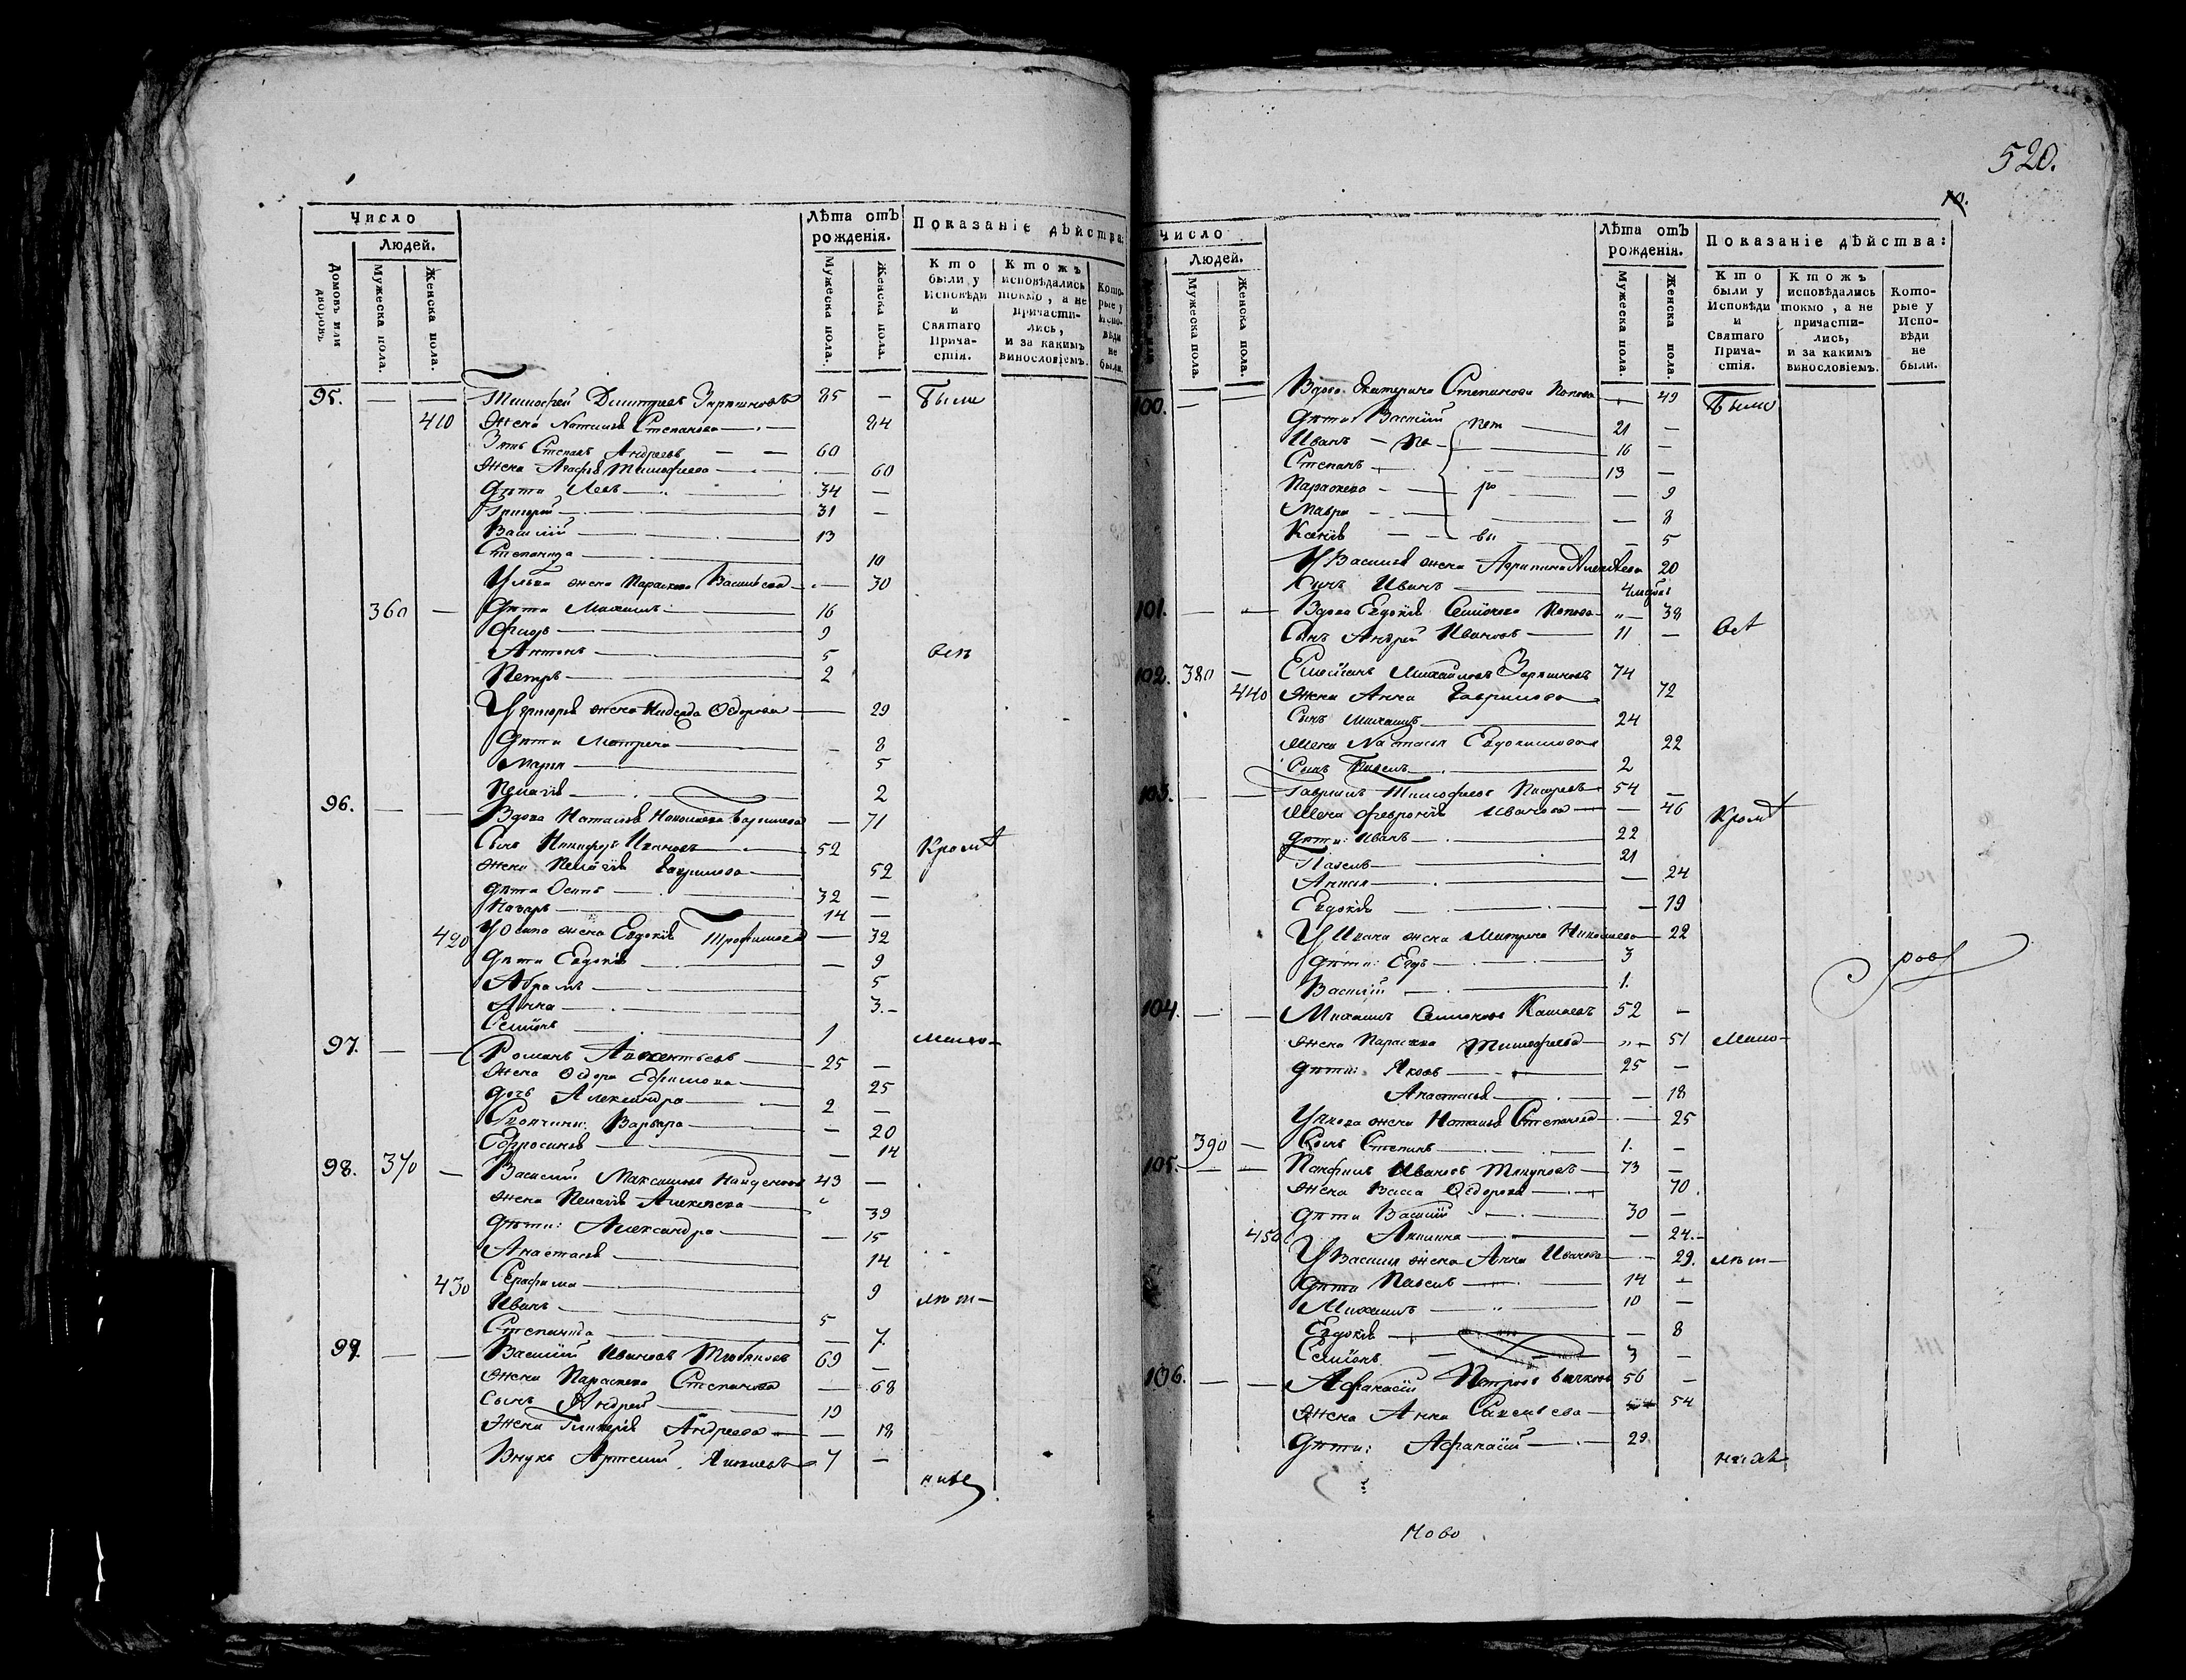 Число
Людей.
Домовъ или дворовъ
Мужеска пола.
Женска пола.
Лѣта отъ рожденія.
Мужеска пола.
Женска пола.
Показаніе дѣйства:
Кто были у Исповѣди и Святаго Прича-стія.
Ктожъ исповѣдались токмо, а не причасти-лись, и за какимъ винословіемъ.
Кото-рые у Испо-вѣди не были.
95. — — Тимофей Димитріевъ 85 — Были
410 Жена Наталья Степанова 84
Зять Степанъ Андреевъ — — 60
Жена Агафья Тимофеева — 60
Дѣти Левъ 34 —
Григорей 31 —
Василій 13
Степанида 10
У Льва жена Параскева Васильева — 30
360 — Дѣти Михаилъ 16
Ѳедоръ 9
Антонъ 5 вси
Петръ 2
У Григорья жена Надежда Ѳедорова 29
Дѣти Матрена 8
Марья 5
Пелагія 2
96. — — Вдова Наталья — 71
Сынъ Никифоръ Ивановъ 52 Кромѣ
Жена Пелагія Гаврилова 52
Дѣти Осипъ 32 —
Назаръ 14 —
420 У Осипа жена Евдокія Трофимова — 32
Дѣти Евдокія — 9
Абрамъ 5
Анна 3.-
Семіонъ 1 мало-
97. — — Романъ 25 —
Жена Ѳедора Ефимова 25
Дочь Александра 2 —
Варвара — 20
Ефросинья — 14
98. 370 — Василій Максимовъ Найденовъ 43 —
Жена Пелагія Алексеева 39
Дѣти: Александра — 15
Анастасья 14
430 Серафима 9 лѣт-
Иванъ 5
Степанида — 7.
99. — — Василій Ивановъ 69 —
Жена Параскева Степанова — 68
Сынъ Андрей 19
Жена Гликерія Андреева — 18
Внукъ Артемій 7 —
нихъ
520.
10.
Число
Людей.
Мужеска пола.
Женска пола.
Лѣта отъ рожденія.
Мужеска пола.
Женска пола.
Показаніе дѣйства:
Кто были у Исповѣди и Святаго Прича-стія.
Ктожъ исповѣдались токмо, а не причасти-лись, и за какимъ винословіемъ.
Кото-рые у Испо-вѣди не были.
100. — — Вдова Екатерина Степанова Попова 49 Были
Дѣти Василій Пет 21 —
Иванъ 16 —
Степанъ 13 —
Параскева ро — 9
Мавра — 8
Ксенія вы — 5
У Василья жена Агрипина 20
Сынъ Иванъ
101. — — Вдова Евдокія Семіонова Попова 38
Сынъ Андрей Ивановъ 11 — всѣ
102. 380 — Михайловъ 74
440 Жена Анна Гаврилова 72
Сынъ Михаилъ 24
Жена Настасья Евдокимова 22
Сынъ Павелъ 2
103. — — Гаврилъ Тимофеевъ 54 —
Жена Февронія Иванова — 46 Кромѣ
Дѣти: Иванъ 22
Павелъ 21
Анисья — 24
Евдокія — 19
У Ивана жена Матрена Николаева 22
Дѣти: 3
Василій 1.
104. — — Михаилъ Семионовъ 52 —
Жена Параскева Тимофеева 51 Мало-
Дѣти: Яковъ 25 —
Анастасья — 18
У Якова жена Наталья Степанова 25
390 — Сынъ Степанъ 1. —
105. — — Панфилъ Ивановъ 73 —
Жена Васса Ѳедорова 70.
Дѣти Василій 30 —
450 Акилина — 24.-
У Василья жена Анна Иванова 29. лѣт-
Дѣти Павелъ 14 —
Михаилъ 10 —
Евдокія — 8
Семіонъ 3 —
106. — — Афанасій Петровъ 56 —
Жена Анна Савельева 54
Дѣти: Афанасій 29
нихъ
Ново